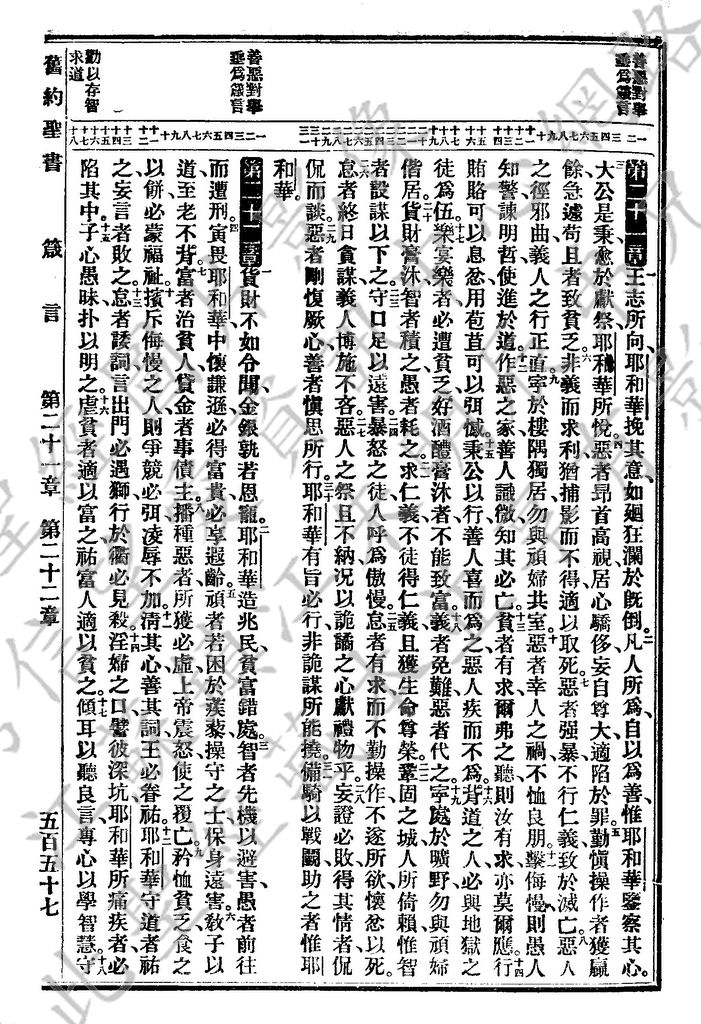 善惡對舉
垂為箴言
一二三四五六七八九十
十一十二十三十四
十五十六
十七十八十九
第二十一章 一王志所向、耶和華挽其意、如廻狂瀾於旣倒。二凡人所為、自以為善、惟耶和華鑒察其心。
三大公是秉、愈於獻祭、耶和華所悅。四惡者昂首高視、居心驕侈、妄自尊大、適陷於罪。五勤愼操作者獲贏
餘、急遽苟且者致貧乏。六非義而求利、猶捕影而不得、適以取死。七惡者强暴、不行仁義、致於滅亡。八惡人
之徑邪曲、義人之行正直。九寧於樓隅獨居、勿與頑婦共室。十惡者幸人之禍、不恤良朋。十一擊侮慢、則愚人
知警、諫明哲、使進於道。十二作惡之家、善人識微、知其必亡。十三貧者有求、爾弗之聽、則汝有求、亦莫爾應。十四行
賄賂可以息忿、用苞苴可以弭憾。十五秉公以行、善人喜而為之、惡人疾而不為。十六背道之人、必與地獄之
徒為伍。十七樂宴樂者必遭貧乏、好酒醴膏沐者、不能致富。十八義者免難、惡者代之。十九寧處於曠野、勿與頑婦
偕居。二十貨財膏沐、智者積之、愚者耗之。二一求仁義、不徒得仁義、且獲生命尊榮。二二鞏固之城、人所倚賴、惟智
者設謀以下之。二三守口、足以遠害。二四暴怒之徒、人呼為傲慢。二五怠者有求、而不勤操作、不遂所欲、懷忿以死。
二六怠者終日貪謀、義人博施不吝。二七惡人之祭且不納、況以詭譎之心、獻禮物乎。二八妄證必敗、得其情者侃
侃而談。二九惡者剛愎厥心、善者愼思所行。三十耶和華有旨必行、非詭謀所能撓。三一備騎以戰鬭、助之者惟耶
和華。
第二十二章 一貨財不如令聞、金銀孰若恩寵。二耶和華造兆民、貧富錯處。三智者先機以避害、愚者前往
而遭刑。四寅畏耶和華、中懷謙遜、必得富貴、必享遐齡。五頑者若困於蒺藜、操守之士、保身遠害。六敎子以
道、至老不背。七富者治貧人、貸金者事債主。八播種惡者、所獲必虛、上帝震怒、使之覆亡。九矜恤貧乏、食之
以餅、必蒙福祉。十擯斥侮慢之人、則爭競必弭、凌辱不加。十一淸其心、善其詞、王必眷祐。十二耶和華守道者祐
之、妄言者敗之。十三怠者諉詞、言出門必遇獅、行於衢必見殺。十四淫婦之口、譬彼深坑、耶和華所痛疾者、必
陷其中。十五子心愚昧、扑以明之。十六虐貧者、適以富之、祐富人、適以貧之。十七傾耳以聽良言、專心以學智慧。十八守
勸以存智
求道
舊約聖書 箴言 第二十一章 第二十二章 五百五十七